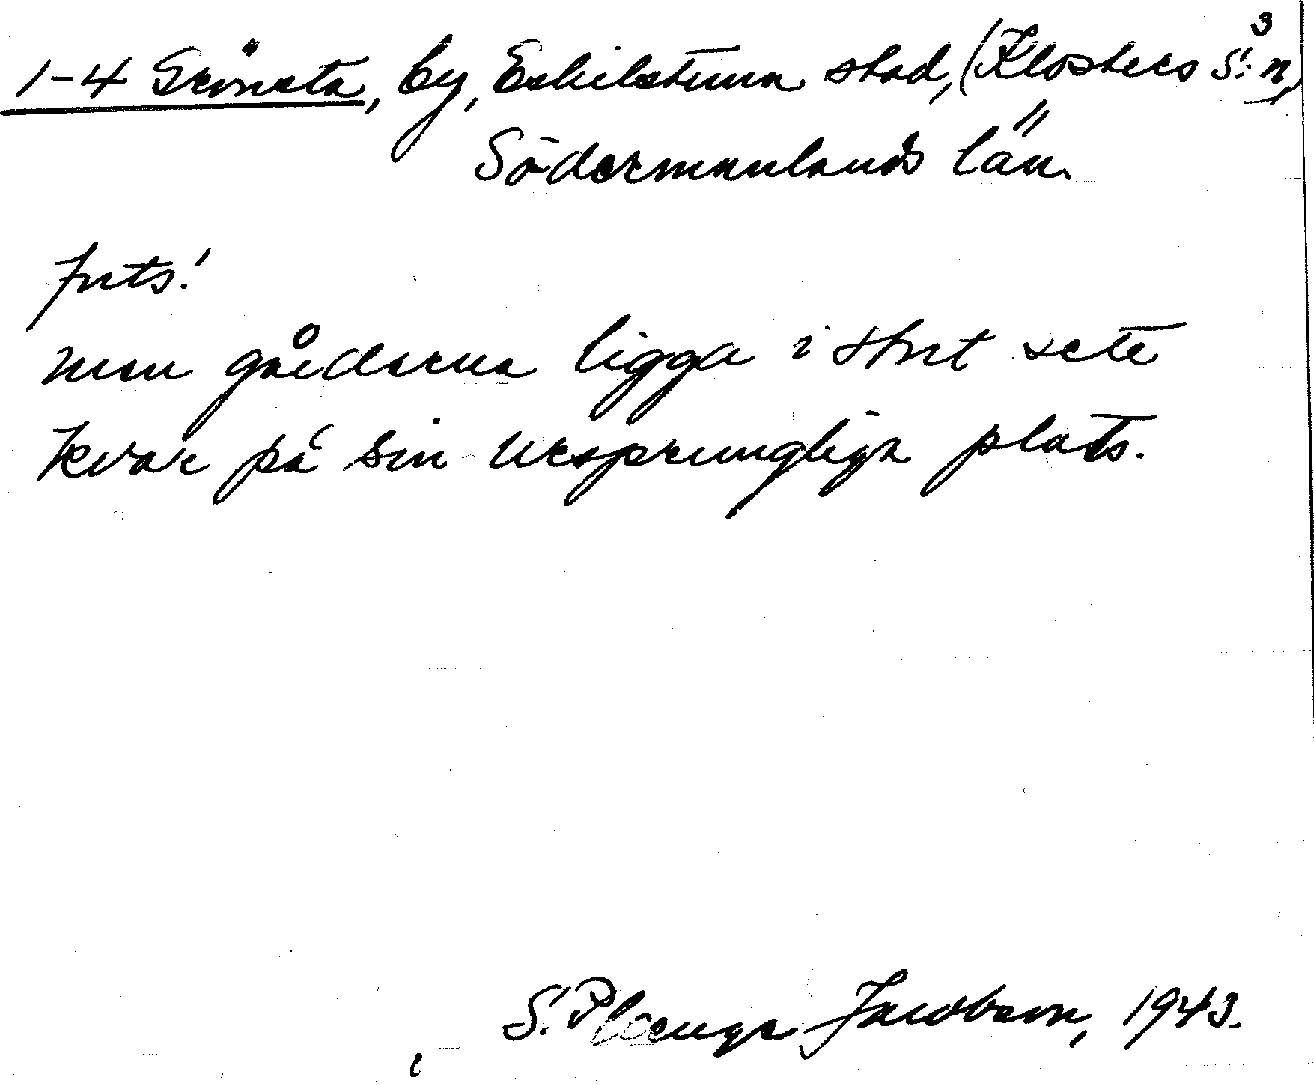 3
1-4 Grönsta, by, Eskilstuna stad, (Klosters S:n,
Södermanlands län.
forts!
men gårdarna ligga i stort sett
kvar på sin ursprungliga plats.
S. Plœnge Jacobson, 1943.